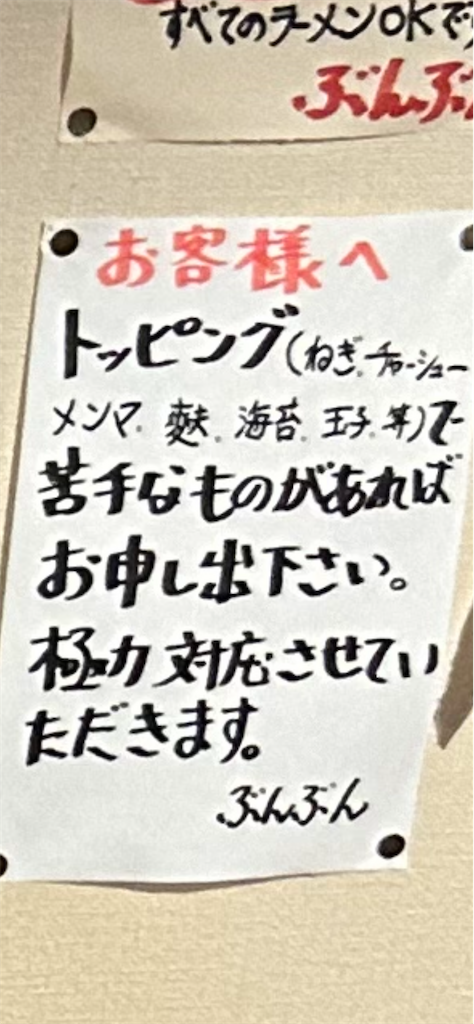 すべてのラーメンOKで
ぶんぶ
お客様へ
トッピング(ねぎ、チャーシュー
メンマ、麩、海苔、玉子、等)で
苦手なものがあれば
お申し出下さい。
極力対応させてい
ただきます。
ぶんぶん